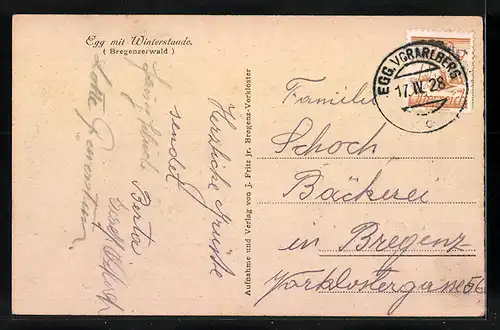 Egg mit Winterstaude.
(Bregenzerwald)
Herzliche Grüße
sendet
Berta
Aufnahme und Verlag von J. Fritz jr. Bregenz-Vorkloster
EGG, VORARLBERG
17.IV.28
c
Familie
Schoch
Bäckerei
in Bregenz
Vorklostergasse 56